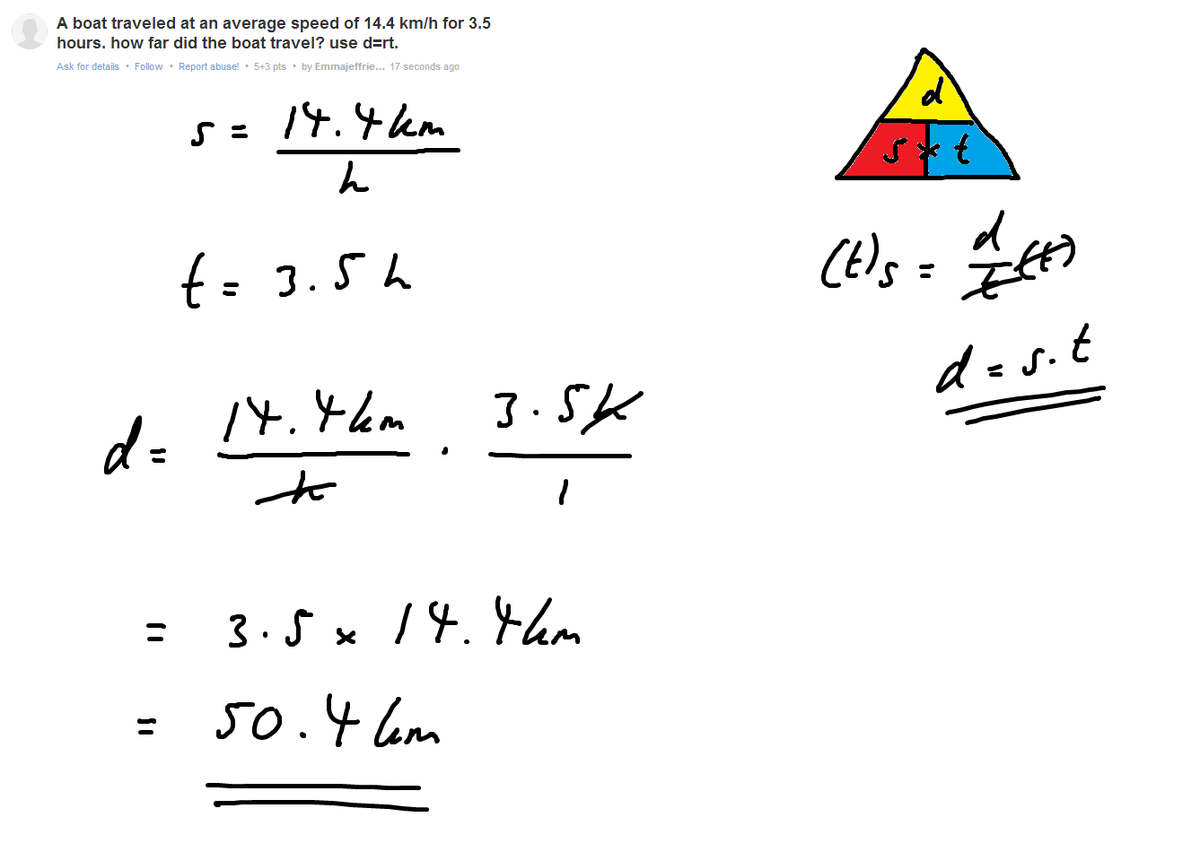 A boat traveled at an average speed of 14.4 km/h for 3.5
hours. how far did the boat travel? use d=rt.
Ask for details • Follow • Report abuse! • 5+3 pts • by Emmajeffrie... 17 seconds ago
s = 14.4km
h
t = 3.5 h
d = 14.4km . 3.5h
h 1
= 3.5 x 14.4km
= 50.4km
d
s * t
(t)s = d (t)
t
d = s.t